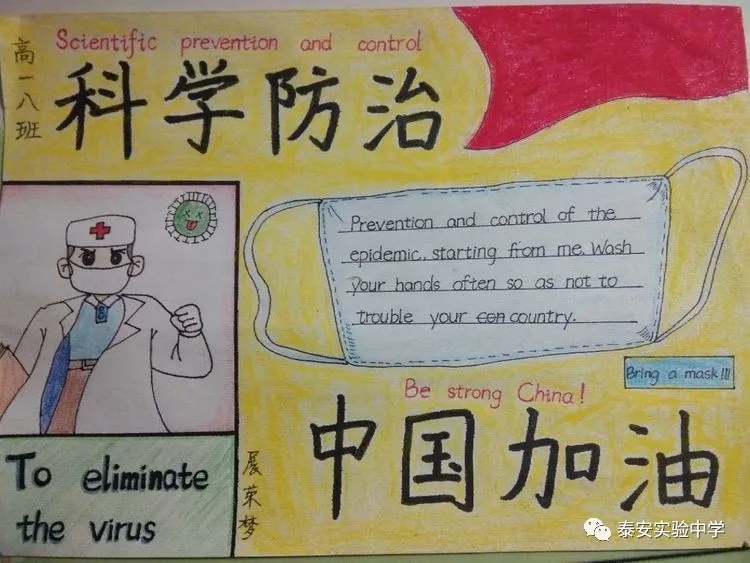 高一八班
Scientific prevention and control
科学防治
Prevention and control of the
epidemic, starting from me. Wash
your hands often so as not to
trouble your con country.
Bring a mask!!!
Be strong China!
中国加油
To eliminate
the virus
展荣梦
泰安实验中学